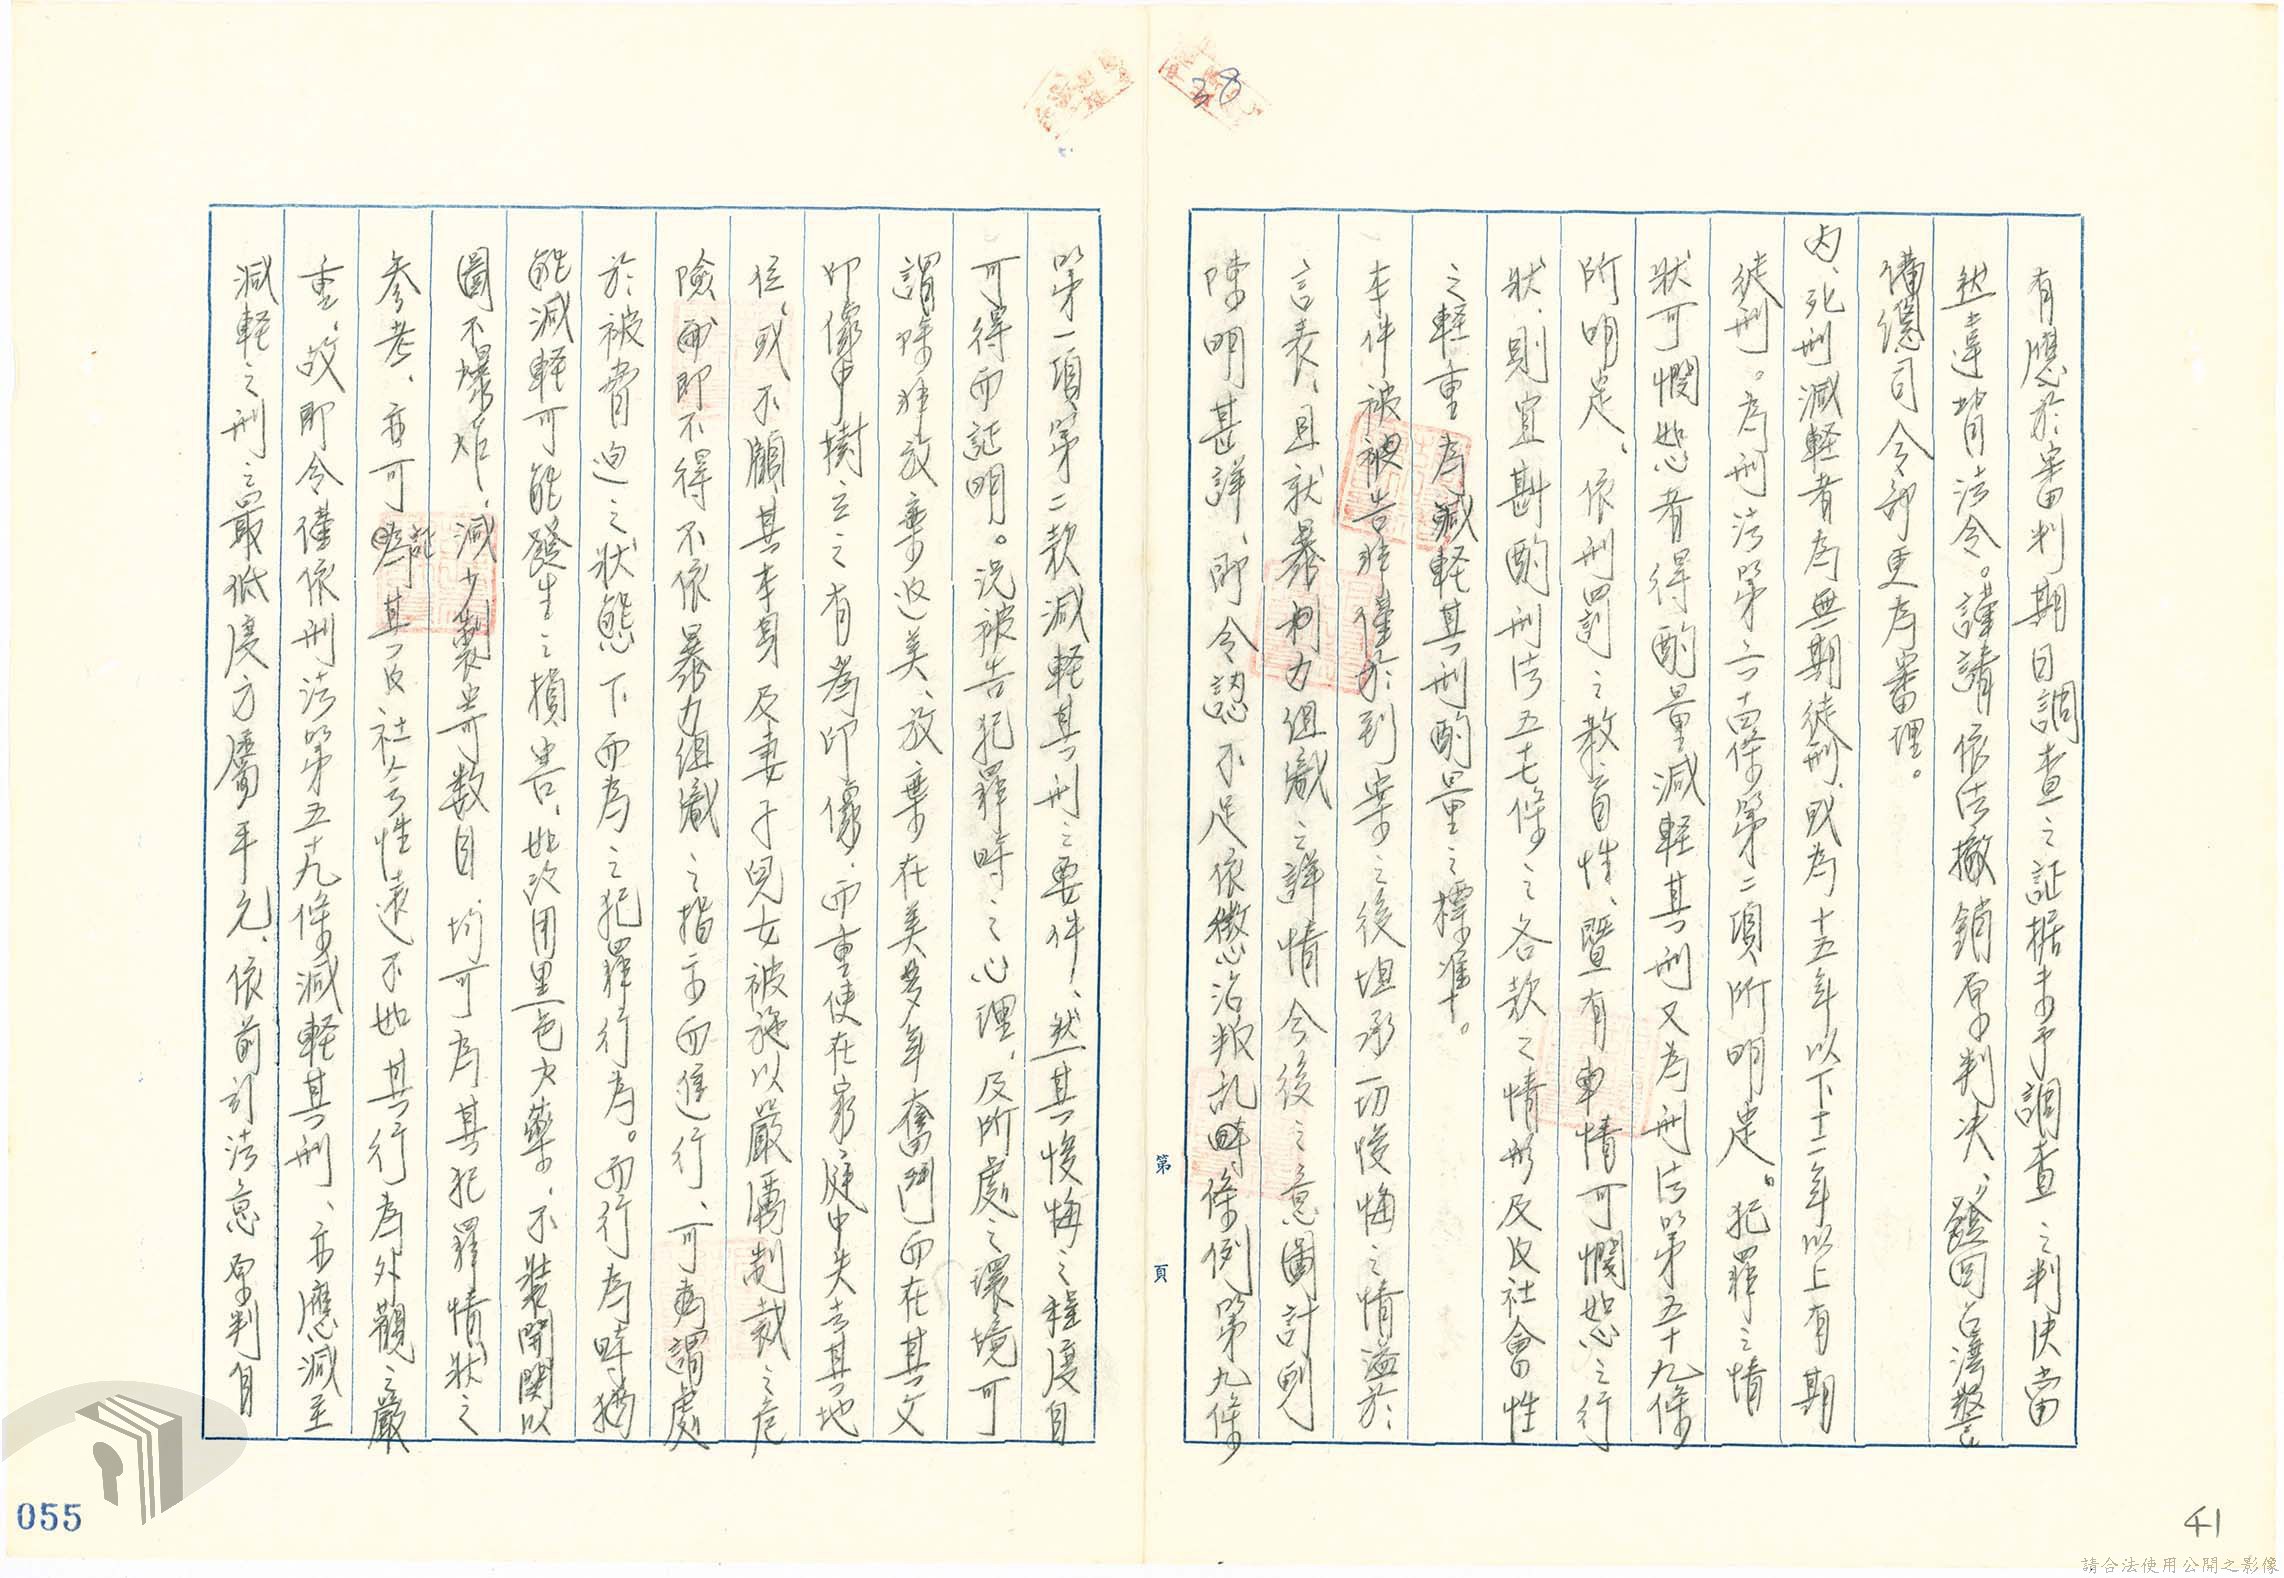 38
有應於審判期日調查之証据未予調查之判決當
然違背法令。謹請依法撤銷原判決，發回台灣警
備總司令部更為審理。
內、死刑減輕者為無期徒刑，或為十五年以下十二年以上有期
徒刑。為刑法第六十四條第二項所明定。犯罪之情
狀可憫恕者得酌量減輕其刑又為刑法第五十九條
所明定、依刑罰之教育性、暨有事情可憫恕之行
狀，則宜斟酌刑法五七條之各款之情形及反社會性
之輕重為減輕其刑酌量之標準。
本件被告非僅於到案之後坦承一切悛悔之情溢於
言表、且就暴力組織之詳情今後之意圖計劃
陳明甚詳、即令認不足依懲治叛乱條例第九條
第一項第二款減輕其刑之要件、然其悛悔之程度自
可得而証明。況被告犯罪時之心理，及所處之環境可
謂除非放棄返美、放棄在美多年奮鬥而在其父
印像中樹立之有為印像，而重使在家庭中失去其地
位，或不顧其本身及妻子兒女被施以嚴厲制裁之危
險即不得不依暴力組織之指示而進行、可謂處
於被脅迫之狀態下而為之犯罪行為。而行為時猶
能減輕可能發生之損害，如改用黑色火藥，不裝開関以
圖不爆炸，減少製出書可数目，均可為其犯罪情狀之
參考、亦可証其反社会性遠不如其行為外觀之嚴
重，故即令僅依刑法第五十九條減輕其刑、亦應減至
減輕之刑之最低度方屬平允，依前引法意原判自
第 頁
055
41
請合法使用公開之影像